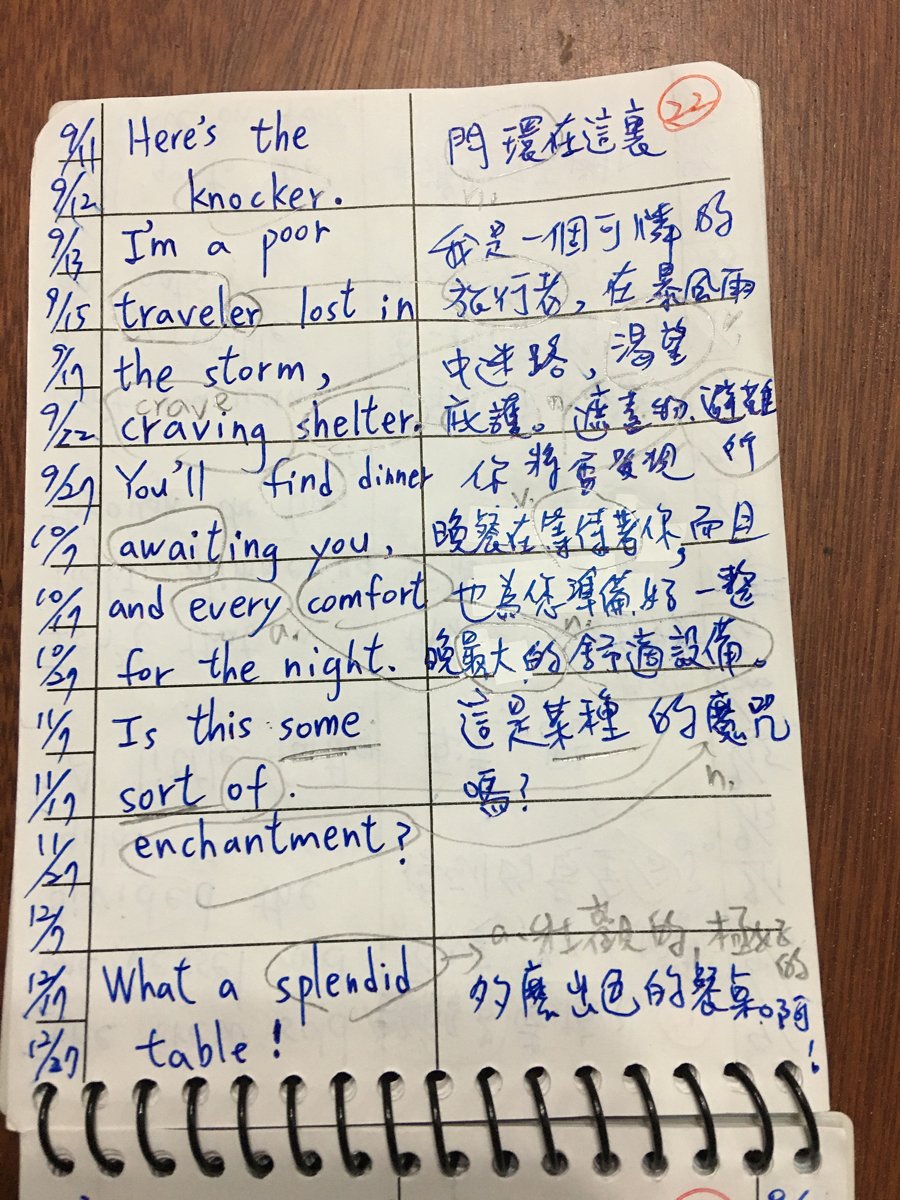 22
9/11 Here's the 門環在這裏
9/12 knocker. n.
9/13 I'm a poor 我是一個可憐的
9/15 traveler lost in 旅行者，在暴風雨
9/17 the storm, 中迷路，渴望 v.
crave n.
9/22 craving shelter. 庇護。遮蓋的.避難
9/27 You'll find dinner 你將會發現 所
v.
10/7 awaiting you, 晚餐在等待著你,而且
10/17 and every comfort 也為您準備好一整
a. n.
10/27 for the night. 晚最大的舒適設備。
11/7 Is this some 這是某種的魔咒
11/17 sort of. 嗎? n.
11/27 enchantment?
12/7
a. 壯觀的,極好的
12/17 What a splendid 多麼出色的餐桌。啊!
12/27 table!